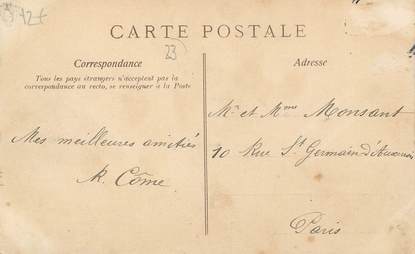 12+
CARTE POSTALE
23
Correspondance
Tous les pays étrangers n'acceptent pas la
correspondance au recto, se renseigner à la Poste
Mes meilleures amitiés
K. Côme
Adresse
Mr et Mme Monsant
10 Rue St Germain d'Auxerrois
Paris